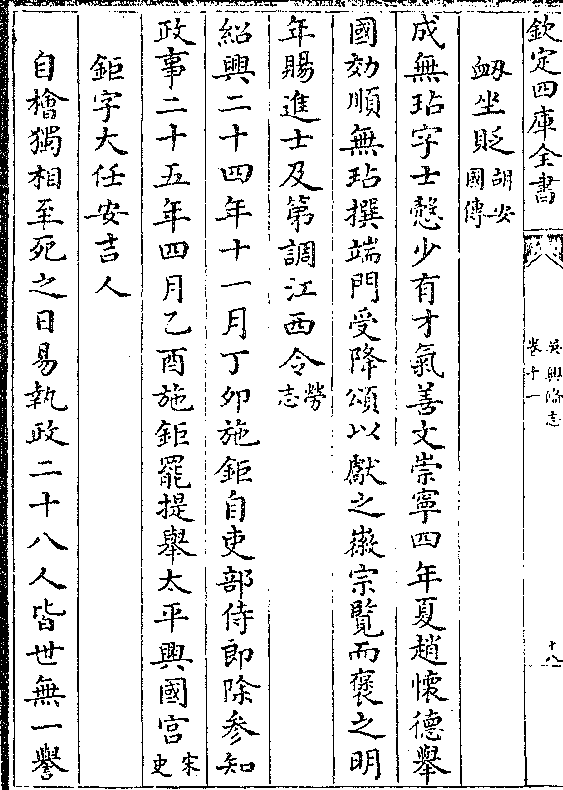 欽定四庫全書
吳興備志
卷十一
十八
劾坐貶胡安國傳
成無玷字士慤少有才氣善文崇寧四年夏趙懷德舉
國効順無玷撰端門受降頌以獻之徽宗覽而褒之明
年賜進士及第調江西令勞志
紹興二十四年十一月丁卯施鉅自吏部侍郎除參知
政事二十五年四月乙酉施鉅罷提舉太平興國宫宋史
鉅字大任安吉人
自檜獨相至死之日易執政二十八人皆世無一譽